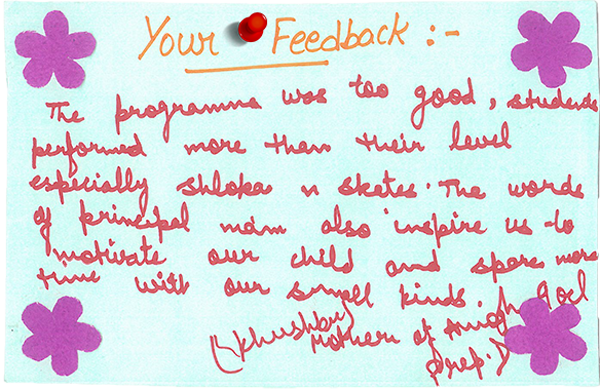 Your Feedback :-
The programme was too good, students
performed more than their level
especially shloka n skates. The words
of principal mam also inspire us to
motivate our child and spare more
time with our small kinds.
(Khushbu)
Mother of Goel
Prep.D